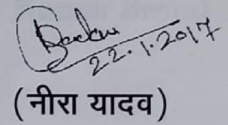 22.1.2017
(नीरा यादव)